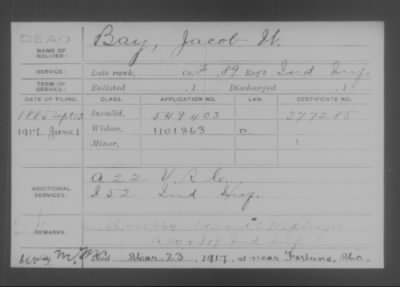 DEAD
NAME OF SOLDIER:
Bay, Jacob W.
SERVICE:
Late rank, Co. F, 89 Reg't Ind Inf.
TERM OF SERVICE:
Enlisted , 1 Discharged , 1
DATE OF FILING. CLASS. APPLICATION NO. LAW. CERTIFICATE NO.
1885 Sept 12 Invalid, 549403 377285
1917, June 1 Widow, 1101863 O.
Minor,
ADDITIONAL SERVICES:
A 22 V R C.
I 52 Ind Inf.
REMARKS:
Ind Inf.
Died Mar. 23, 1917, at near Fortuna, Mo.